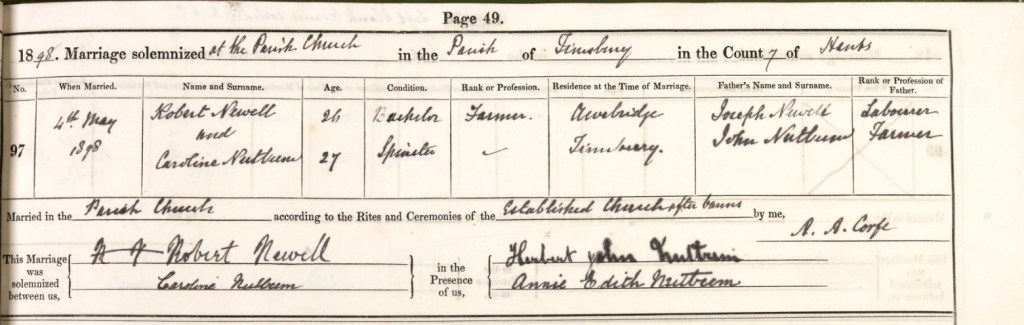 Page 49.
1898. Marriage solemnized at the Parish Church in the Parish of Timsbury in the County of Hants
No. When Married. Name and Surname. Age. Condition. Rank or Profession. Residence at the Time of Marriage. Father's Name and Surname. Rank or Profession of Father.
97 4th May 1898 Robert Newell and Caroline Nutbeem 26 27 Bachelor Spinster Farmer. – Awbridge Timsbury. Joseph Newell John Nutbeem Labourer Farmer
Married in the Parish Church according to the Rites and Ceremonies of the Established Church after banns by me,
A. A. Corfe
This Marriage was solemnized between us, Robert Newell Caroline Nutbeem in the Presence of us, Herbert John Nutbeem Annie Edith Nutbeem